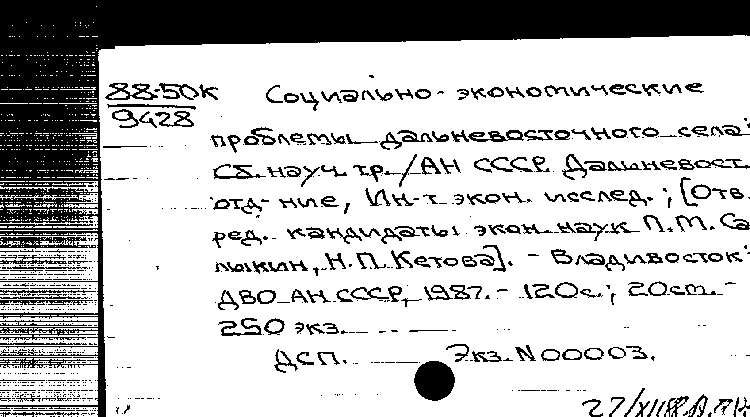 88-50К Социально-экономические
9428
проблемы дальневосточного села:
Сб. науч. тр. / АН СССР. Дальневост.
отд-ние, Ин-т экон. исслед.; [Отв.
ред. кандидаты экон. наук П.М. Са
лыкин, Н.П. Кетова]. - Владивосток:
ДВО АН СССР, 1987. - 120с.; 20см. -
250 экз.
ДСП. Экз. N 00003.
27/XII88